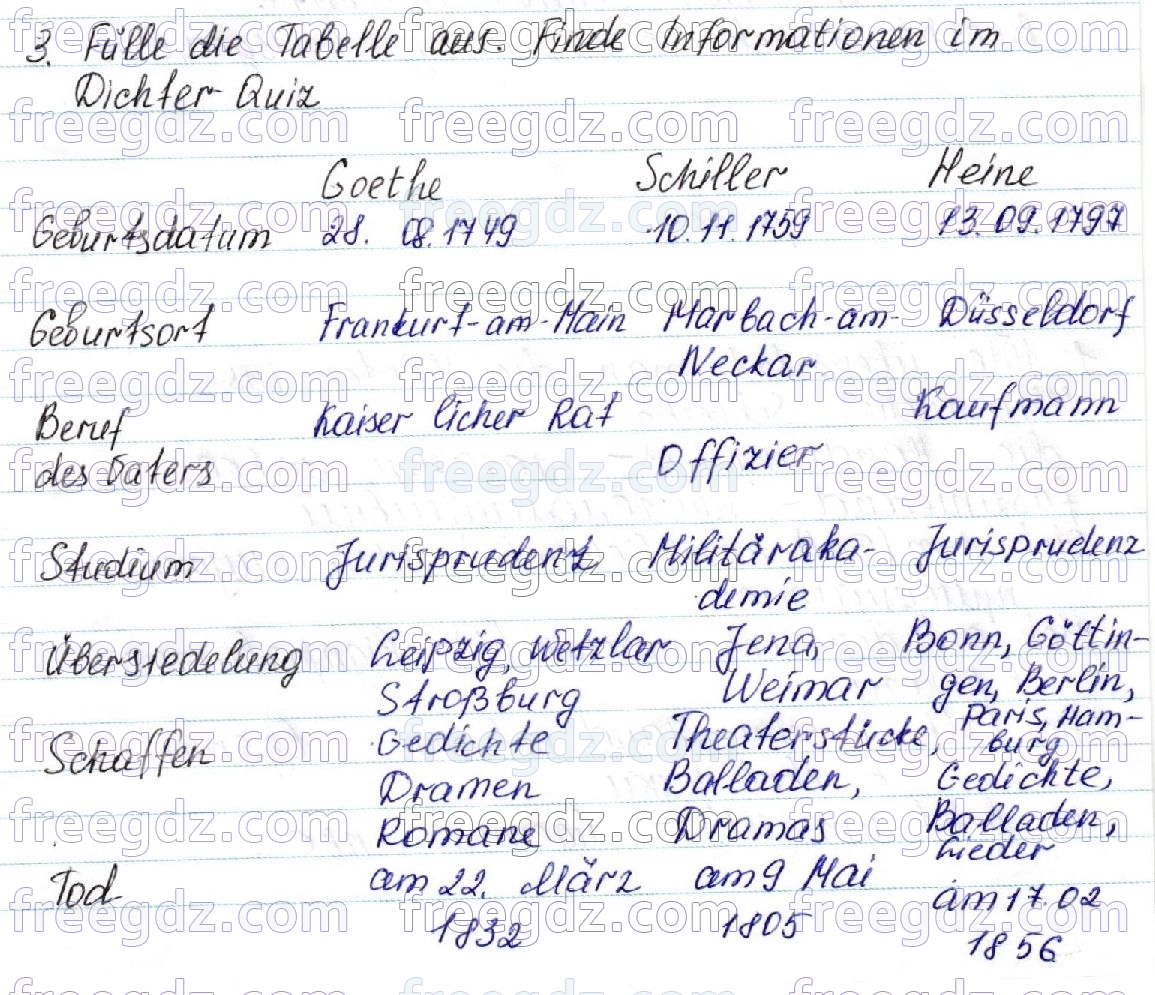 3. Fülle die Tabelle aus. Finde Informationen im
Dichter-Quiz
Goethe Schiller Heine
Geburtsdatum 28. 08.1749 10.11.1759 13.09.1797
Geburtsort Frankurt-am-Main Marbach-am- Düsseldorf
Neckar
Beruf Kaiser licher Rat Kaufmann
des Vaters Offizier
Studium Jurisprudenz Militäraka- Jurisprudenz
demie
Übersiedelung Leipzig, Wetzlar Jena, Bonn, Göttin-
Stroßburg Weimar gen, Berlin,
Paris, Ham-
Schaffen Gedichte Theaterstücke, burg
Dramen Balladen, Gedichte,
Romane Dramas Balladen,
Lieder
Tod am 22. März am 9 Mai am 17.02
1832 1805 1856
freegdz.com